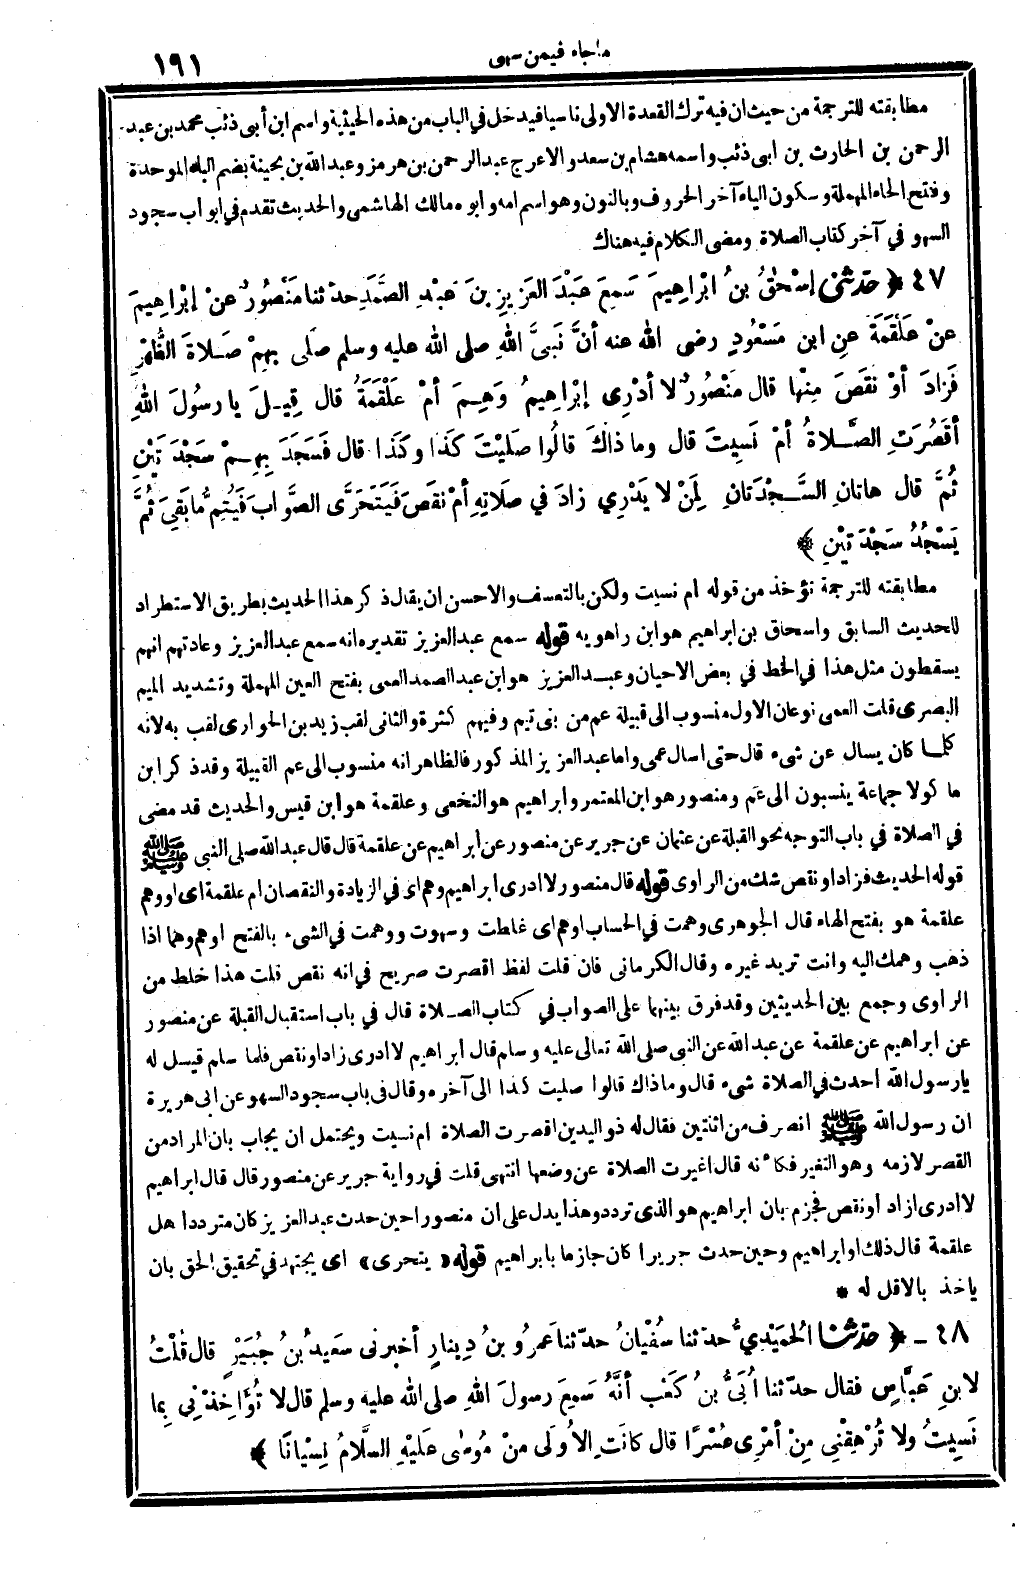 ماجاء فيمن سهى
١٩١
مطابقته للترجمة من حيث ان فيه ترك القعدة الاولى ناسيا فيدخل في الباب من هذه الحيثية واسم ابن أبى ذئب محمد بن عبد
الرحمن بن الحارث بن ابى ذئب واسمه هشام بن سعد والاعرج عبد الرحمن بن هرمز وعبد الله بن بحينة بضم الباء الموحدة
وفتح الحاء المهملة وسكون الياء آخر الحروف وبالنون وهو اسم امه وابوه مالك الهاشمى والحديث تقدم في ابواب سجود
السهو في آخر كتاب الصلاة ومضى الكلام فيه هناك
٤٧ ﴿ حَدَّثَنِى إسْحٰقُ بنُ ابْراهِيمَ سَمِعَ عَبْدَ العَزِيزِ بنَ عبْدِ الصَّمَدِ حدثنا مَنْصُورٌ عنْ إبْراهِيمَ
عنْ عَلْقَمَةَ عنِ ابنِ مَسْعُودٍ رضى الله عنه أنَّ نَبىَّ اللهِ صلى الله عليه وسلم صلَّى بِهِمْ صَلاةَ الظُّهْرِ
فَزادَ أوْ نقَصَ مِنْها قال منْصُورٌ لا أدْرِى إبْراهِيمُ وَهِمَ أمْ عَلْقَمَةُ قال قِيلَ يا رسُولَ اللهِ
أقَصُرَتِ الصَّلاةُ أمْ نَسِيتَ قال وما ذاكَ قالُوا صلَّيْتَ كَذَا وكَذَا قال فَسَجَدَ بِهِمْ سَجْدَتَيْنِ
ثُمَّ قال هاتانِ السَّجْدَتانِ لِمَنْ لا يَدْرِي زادَ في صَلاتِهِ أمْ نقَصَ فَيَتَحَرَّى الصَّوابَ فَيُتِمُّ ما بَقِيَ ثُمَّ
يَسْجُدُ سَجْدَتَيْنِ ﴾
مطابقته للترجمة تؤخذ من قوله ام نسيت ولكن بالتعسف والاحسن ان يقال ذكر هذا الحديث بطريق الاستطراد
للحديث السابق واسحاق بن ابراهيم هو ابن راهويه قوله سمع عبد العزيز تقديره انه سمع عبد العزيز وعادتهم انهم
يسقطون مثل هذا في الخط في بعض الاحيان وعبد العزيز هو ابن عبد الصمد العمى بفتح العين المهملة وتشديد الميم
البصرى قلت العمى نوعان الاول منسوب الى قبيلة عم من بنى تيم وفيهم كثرة والثانى لقب زيد بن الحوارى لقب به لانه
كلما كان يسال عن شىء قال حتى اسال عمى واما عبد العزيز المذكور فالظاهر انه منسوب الى عم القبيلة وقد ذكر ابن
ماكولا جماعة ينسبون الى عم ومنصور هو ابن المعتمر وابراهيم هو النخعى وعلقمة هو ابن قيس والحديث قد مضى
في الصلاة في باب التوجه نحو القبلة عن عثمان عن جرير عن منصور عن ابراهيم عن علقمة قال قال عبد الله صلى النبى ﷺ
قوله الحديث فزاد او نقص شك من الراوى قوله قال منصور لا ادرى ابراهيم وهم اى في الزيادة والنقصان ام علقمة اى او وهم
علقمة هو بفتح الهاء قال الجوهرى وهمت في الحساب اوهم اى غلطت وسهوت ووهمت في الشىء بالفتح اوهم وهما اذا
ذهب وهمك اليه وانت تريد غيره وقال الكرمانى فان قلت لفظ اقصرت صريح في انه نقص قلت هذا خلط من
الراوى وجمع بين الحديثين وقد فرق بينهما على الصواب في كتاب الصلاة قال في باب استقبال القبلة عن منصور
عن ابراهيم عن علقمة عن عبد الله عن النبى صلى الله تعالى عليه وسلم قال ابراهيم لا ادرى زاد او نقص فلما سلم قيل له
يا رسول الله احدث في الصلاة شىء قال وما ذاك قالوا صليت كذا الى آخره وقال فى باب سجود السهو عن ابى هريرة
ان رسول الله ﷺ انصرف من اثنتين فقال له ذو اليدين اقصرت الصلاة ام نسيت ويحتمل ان يجاب بان المراد من
القصر لازمه وهو التغير فكأنه قال اغيرت الصلاة عن وضعها انتهى قلت في رواية جرير عن منصور قال قال ابراهيم
لا ادرى ازاد او نقص فجزم بان ابراهيم هو الذى تردد وهذا يدل على ان منصورا حين حدث عبد العزيز كان مترددا هل
علقمة قال ذلك او ابراهيم وحين حدث جريرا كان جازما بابراهيم قوله « يتحرى » اى يجتهد في تحقيق الحق بان
ياخذ بالاقل له *
٤٨ - ﴿ حَدَّثَنَا الحُمَيْدِيُّ حدثنا سُفْيانُ حدّثنا عَمرُو بنُ دِينارٍ أخبرنى سَعِيدُ بنُ جُبَيْرٍ قال قُلْتُ
لابنِ عَبَّاسٍ فقال حدّثنا أُبَيُّ بنُ كَعْبٍ أنَّهُ سَمِعَ رسولَ اللهِ صلى الله عليه وسلم قال لا تُؤَاخِذْنِي بِما
نَسِيتُ ولا تُرْهِقْنِي مِنْ أمْرِي عُسْرًا قال كانَتِ الأُولَى مِنْ مُوسٰى عَليْهِ السَّلامُ نِسْيانًا ﴾